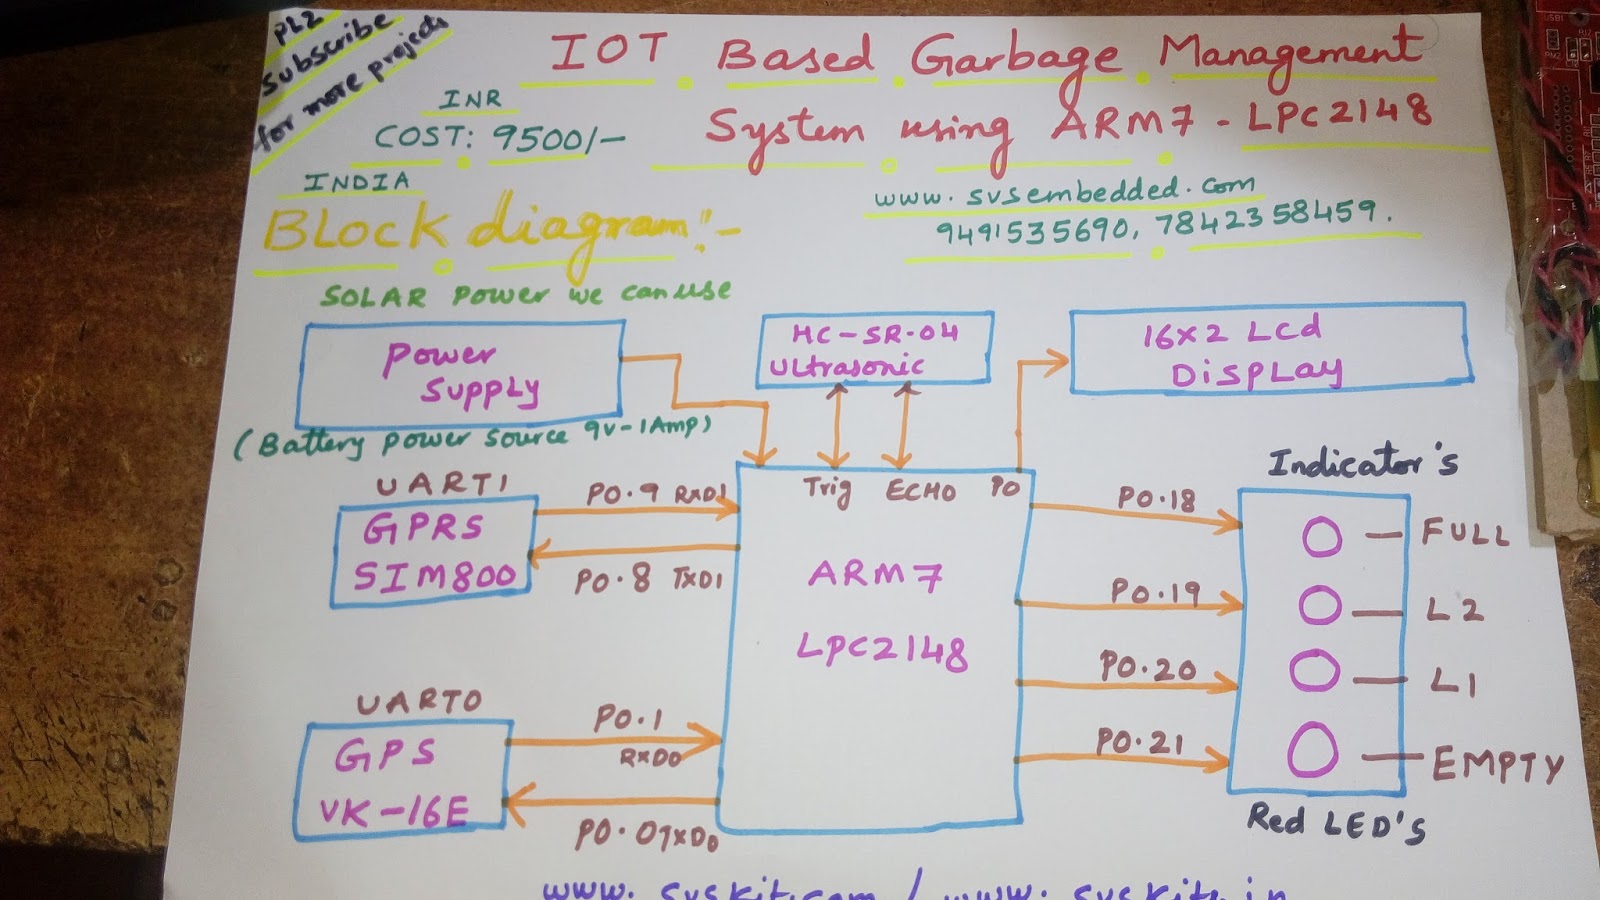 PLZ
Subscribe
for more projects
IOT Based Garbage Management
System using ARM7 - LPC2148
INR
COST: 9500/-
INDIA
www.svsembedded.com
9491535690, 7842358459.
BLock diagram:-
SOLAR Power we can use
Power
Supply
(Battery power source 9V-1Amp)
HC-SR-04
Ultrasonic
16x2 Lcd
DispLay
UART1
GPRS
SIM800
P0.9 RxD1
P0.8 TxD1
Trig ECHO P0
ARM7
LPC2148
UART0
GPS
VK-16E
P0.1
RxD0
P0.0 TxD0
P0.18
P0.19
P0.20
P0.21
Indicator's
FULL
L2
L1
EMPTY
Red LED's
www.svskit.com / www.svskits.in